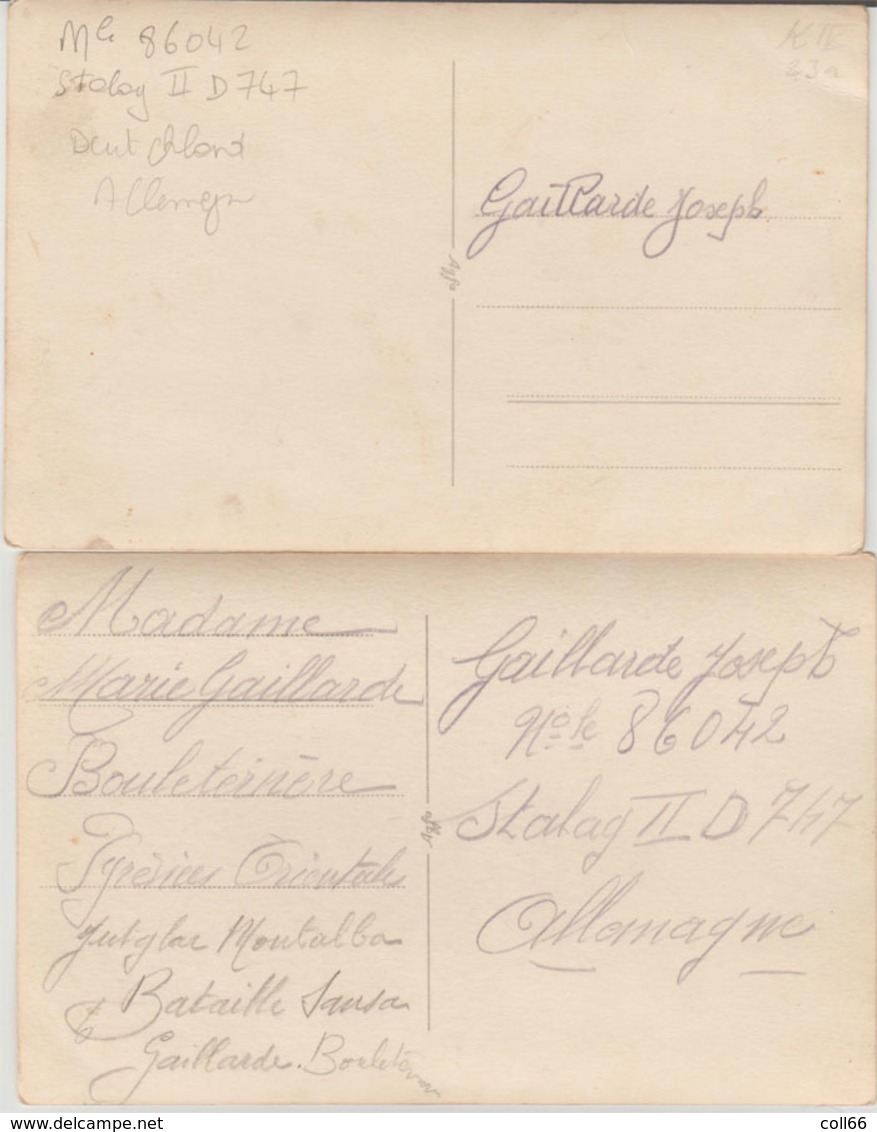 Mle 86042
Stalag II D 747
Deutchland
Allemagn
K IE
23a
Gaillarde Joseph
Agfa
Madame
Marie Gaillarde
Bouleternère
Pyrénées Orientales
Jutglar Montalba
& Bataille Sansa
Gaillarde. Bouletern
Agfa
Gaillarde Joseph
No le 86042
Stalag II D 747
Allemagne
www.delcampe.net
coll66